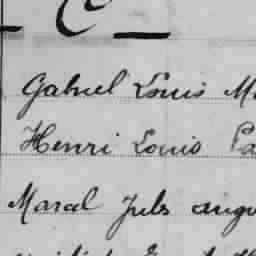 C
Gabriel Louis M
Henri Louis Pa
Maral Jules augu